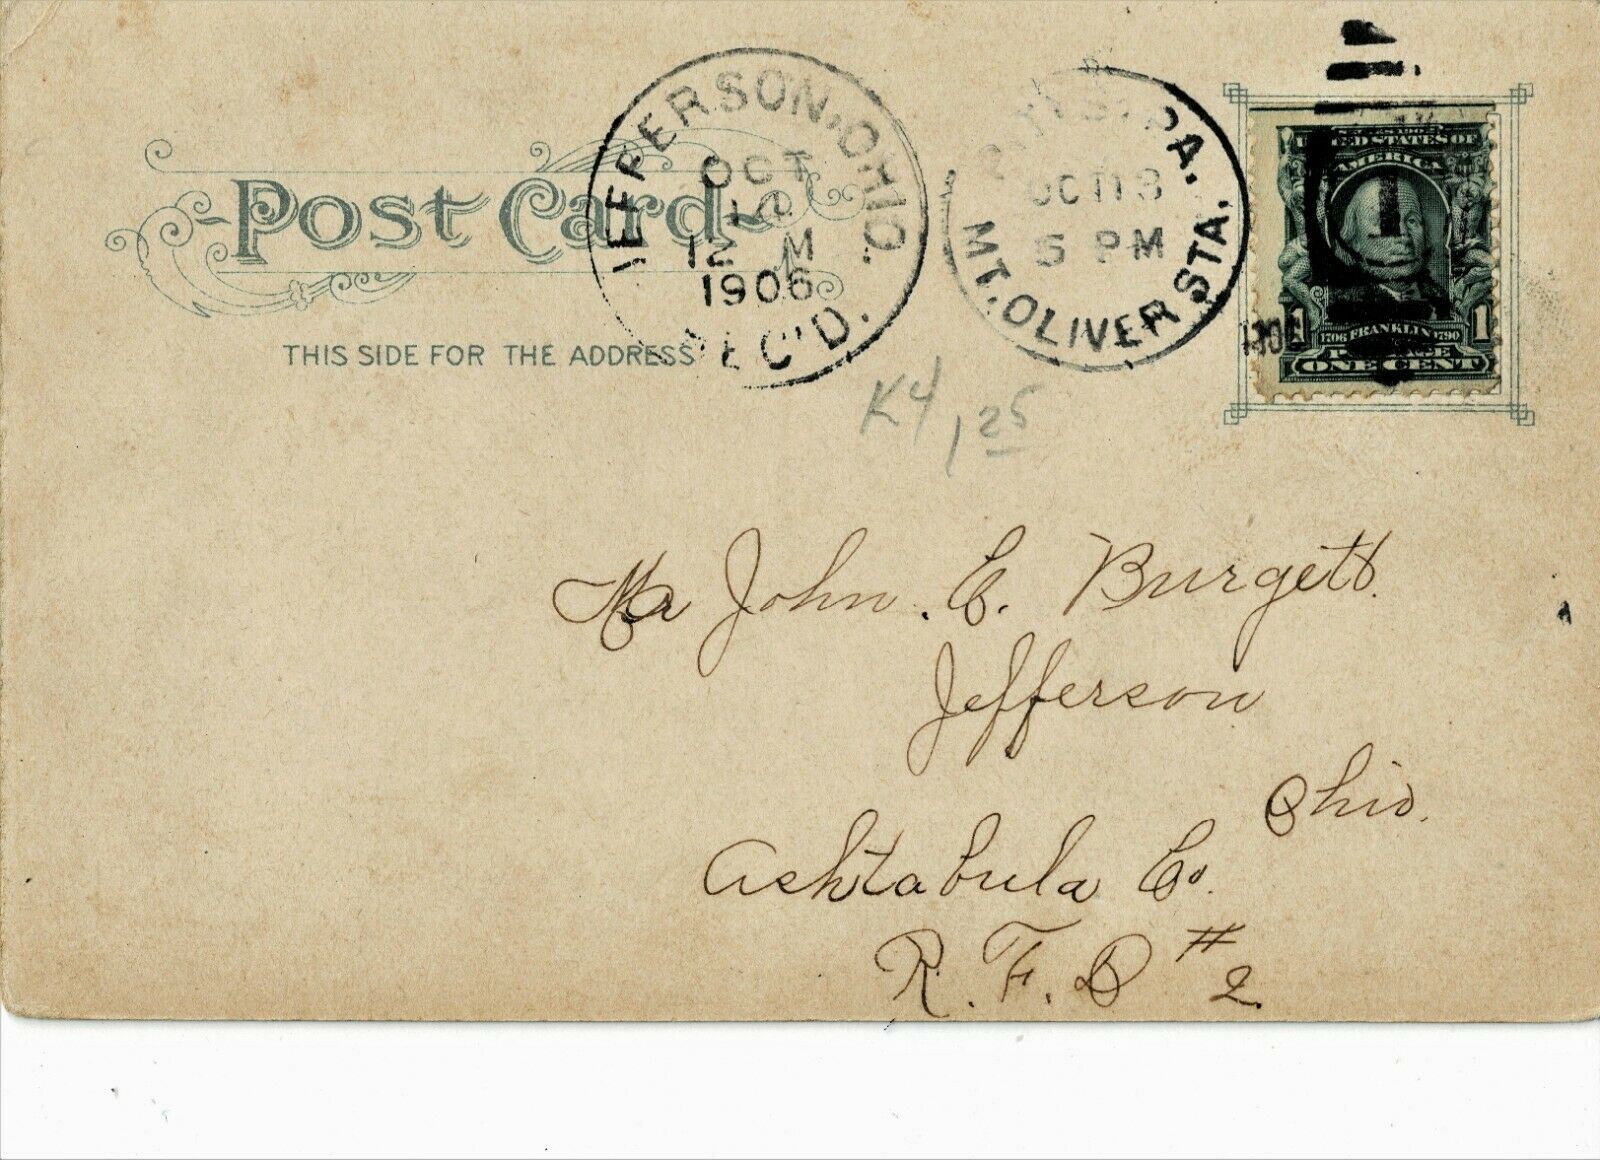 JEFFERSON, OHIO.
OCT
12 M
1906
REC'D.
PA.
OCT 13
5 PM
MT. OLIVER STA.
1906
UNITED STATES OF
AMERICA
1706 FRANKLIN 1790
1 1
ONE CENT
Post Card
THIS SIDE FOR THE ADDRESS
K4 1 25
Mr John. E. Burgett.
Jefferson
Ohio.
Ashtabula Co.
R. F. D # 2.